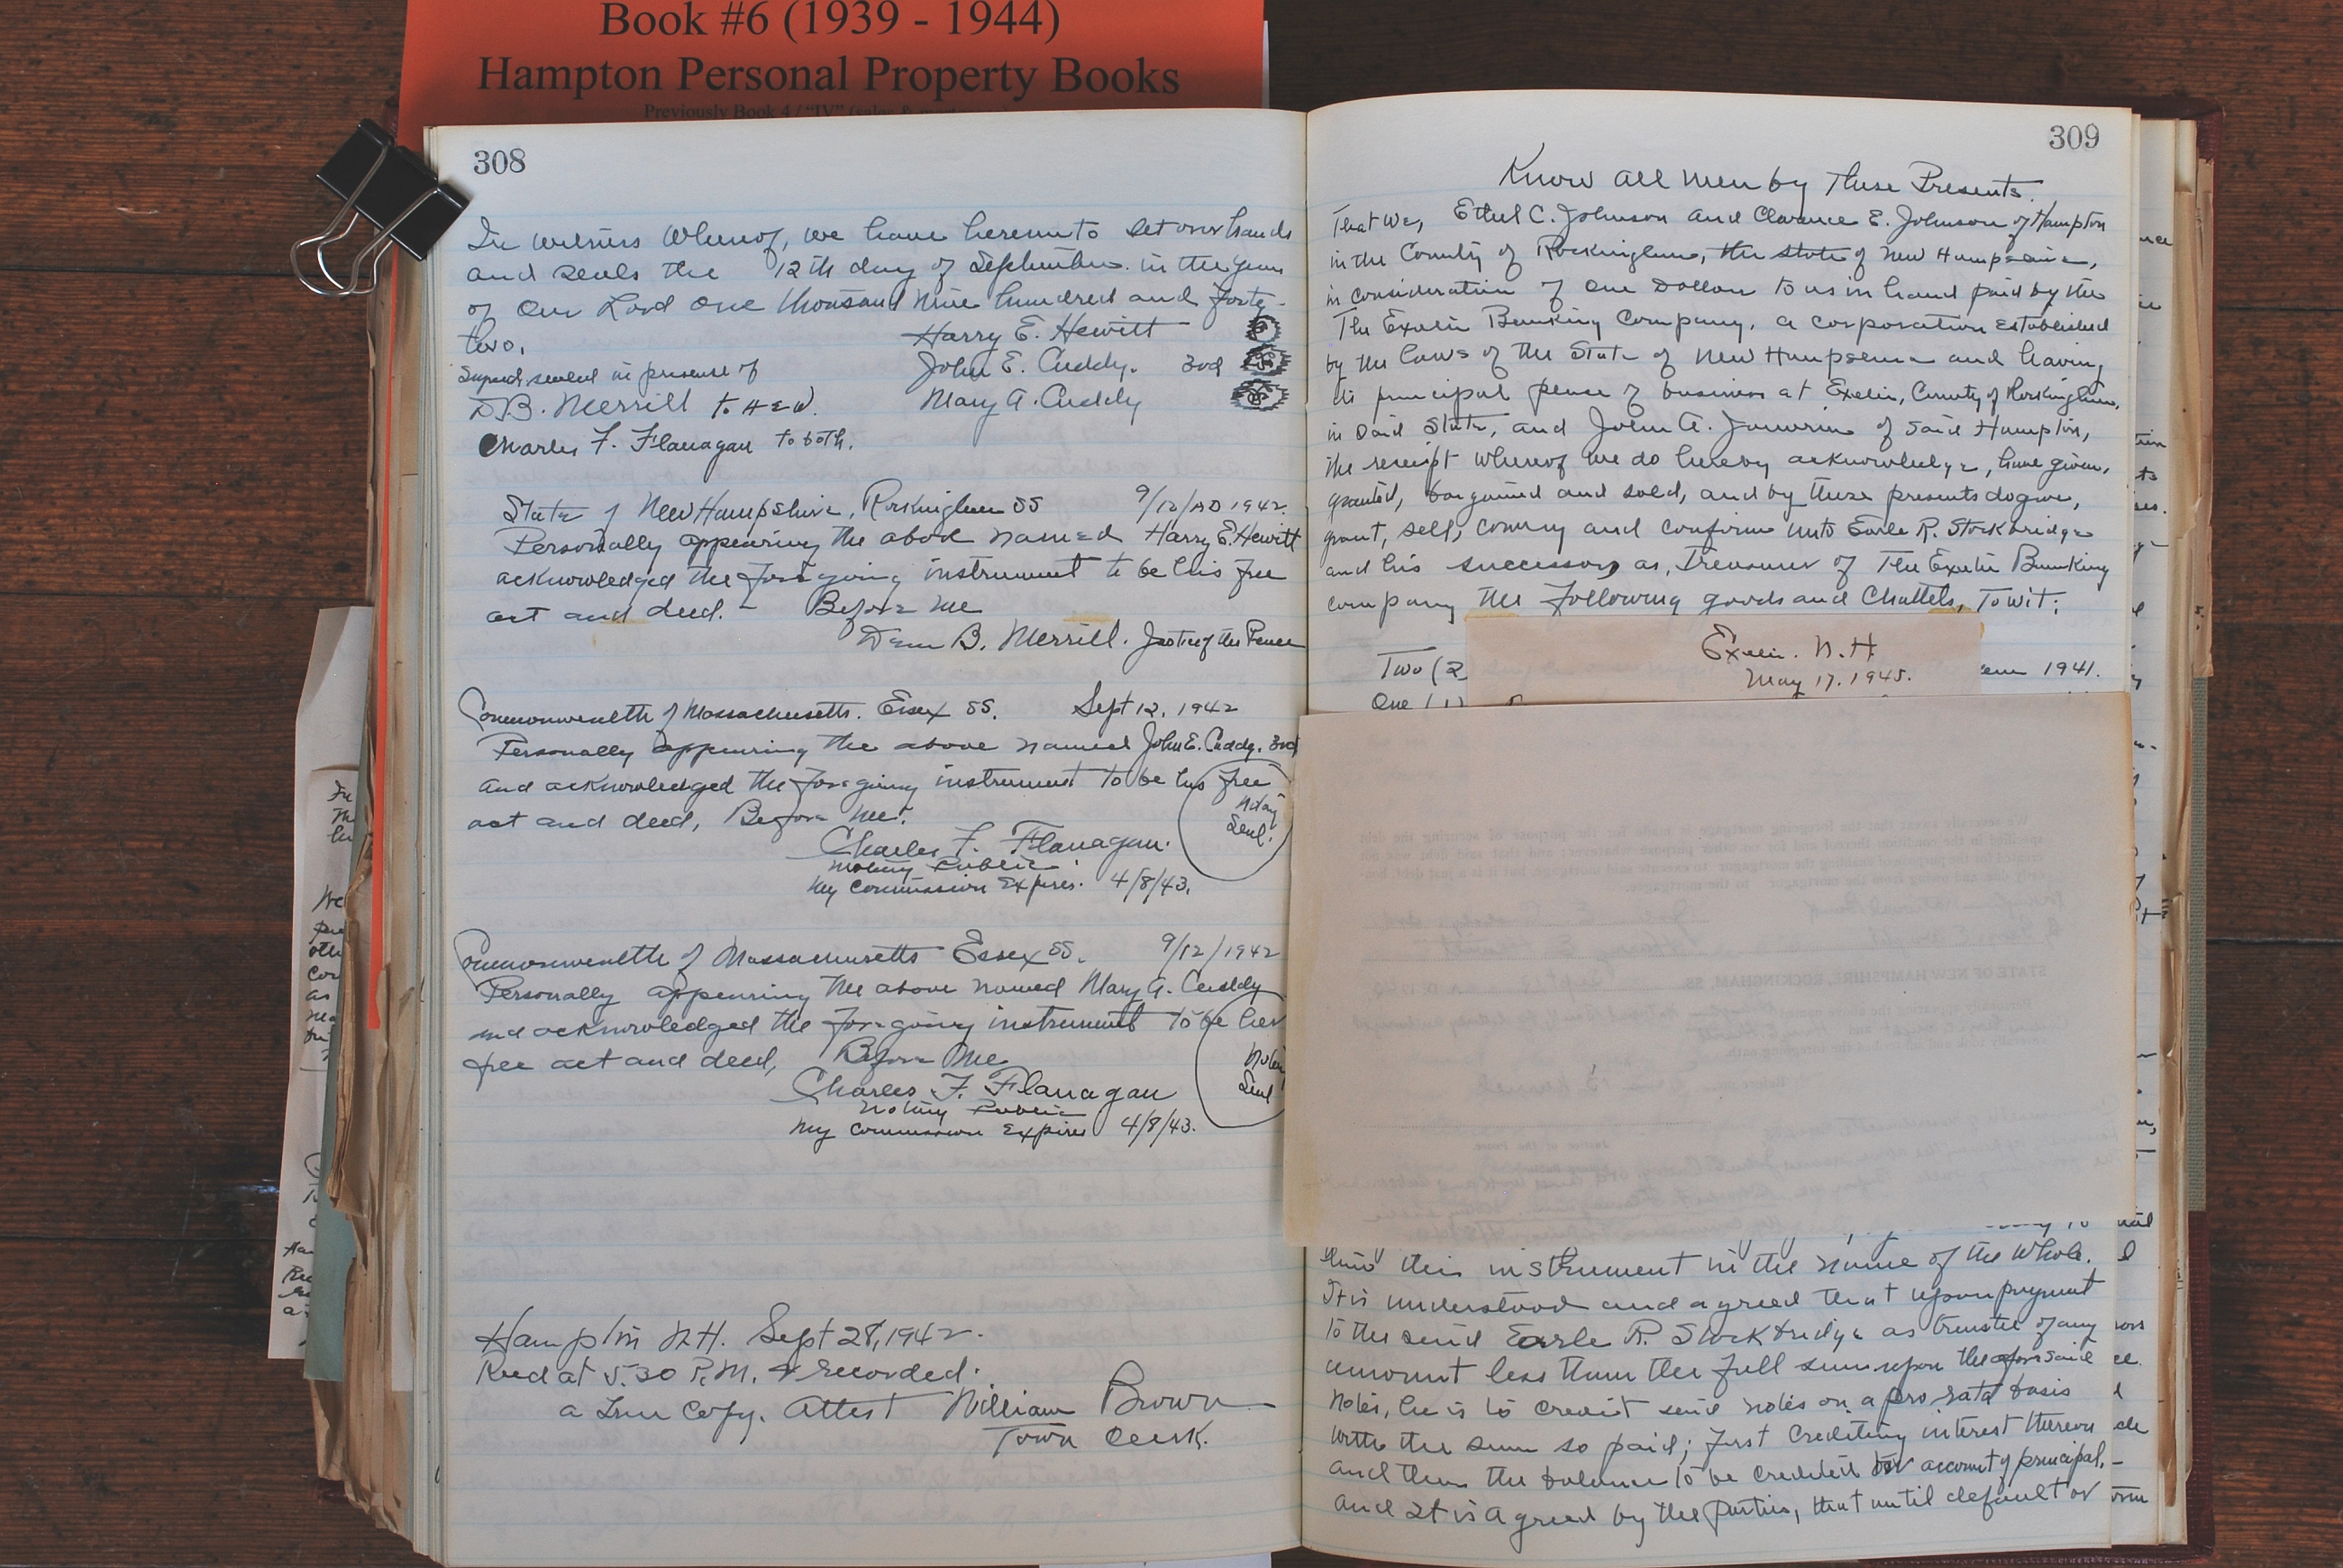 Book #6 (1939 - 1944)
Hampton Personal Property Books
Previously Book 4 / "IV" (sales &
308
In witness Whereof, we have hereunto set our hands
and seals the 12th day of September in the year
of Our Lord One thousand nine hundred and forty-
two.
Harry E. Hewitt
Signed sealed in presence of
John E. Cuddy. 3rd
D B. Merrill to H E W.
Mary A. Cuddy
Charles F. Flanagan to both.
State of New Hampshire, Rockingham SS 9/12/AD 1942.
Personally appearing the above named Harry E. Hewitt
acknowledged the foregoing instrument to be his free
act and deed. - Before me
Dean B. Merrill. Justice of the Peace
Commonwealth of Massachusetts. Essex SS. Sept 12, 1942
Personally appearing the above named John E. Cuddy. 3rd
and acknowledged the foregoing instrument to be his free
act and deed, Before me.
Notary
Seal.
Charles F. Flanagan.
Notary Public
My Commission Expires. 4/8/43.
Commonwealth of Massachusetts Essex SS. 9/12/1942
Personally appearing the above named Mary A. Cuddy
and acknowledged the foregoing instrument to be her
free act and deed, Before Me
Seal
Charles F. Flanagan
Notary Public
My Commission Expires 4/8/43.
Hampton N.H. Sept 28, 1942.
Recd at 5.30 P.M. & recorded.
a True Copy. Attest William Brown
Town Clerk.
309
Know all men by These Presents.
That We, Ethel C. Johnson and Clarence E. Johnson of Hampton
in the County of Rockingham, the state of New Hampshire,
in consideration of One Dollar to us in hand paid by the
The Exeter Banking Company, a corporation established
by the laws of the State of New Hampshire and having
its principal place of business at Exeter, County of Rockingham,
in said State, and John A. Janvrin of said Hampton,
the receipt whereof we do hereby acknowledge, have given,
granted, bargained and sold, and by these presents do give,
grant, sell, convey and confirm unto Earle R. Stockbridge
and his successors as, Treasurer of The Exeter Banking
Company the following goods and Chattels, To wit:
Exeter. N.H
May 17. 1945.
Two (2 1941.
One (1)
this instrument in the name of the whole.
It is understood and agreed that upon payment
to the said Earle R. Stockbridge as trustee of any
amount less than the full sum upon the aforesaid
Notes, he is to credit said notes on a pro rata basis
with the sum so paid; first crediting interest thereon
and then the balance to be credited on account of principal. -
and It is Agreed by the parties, that until default or